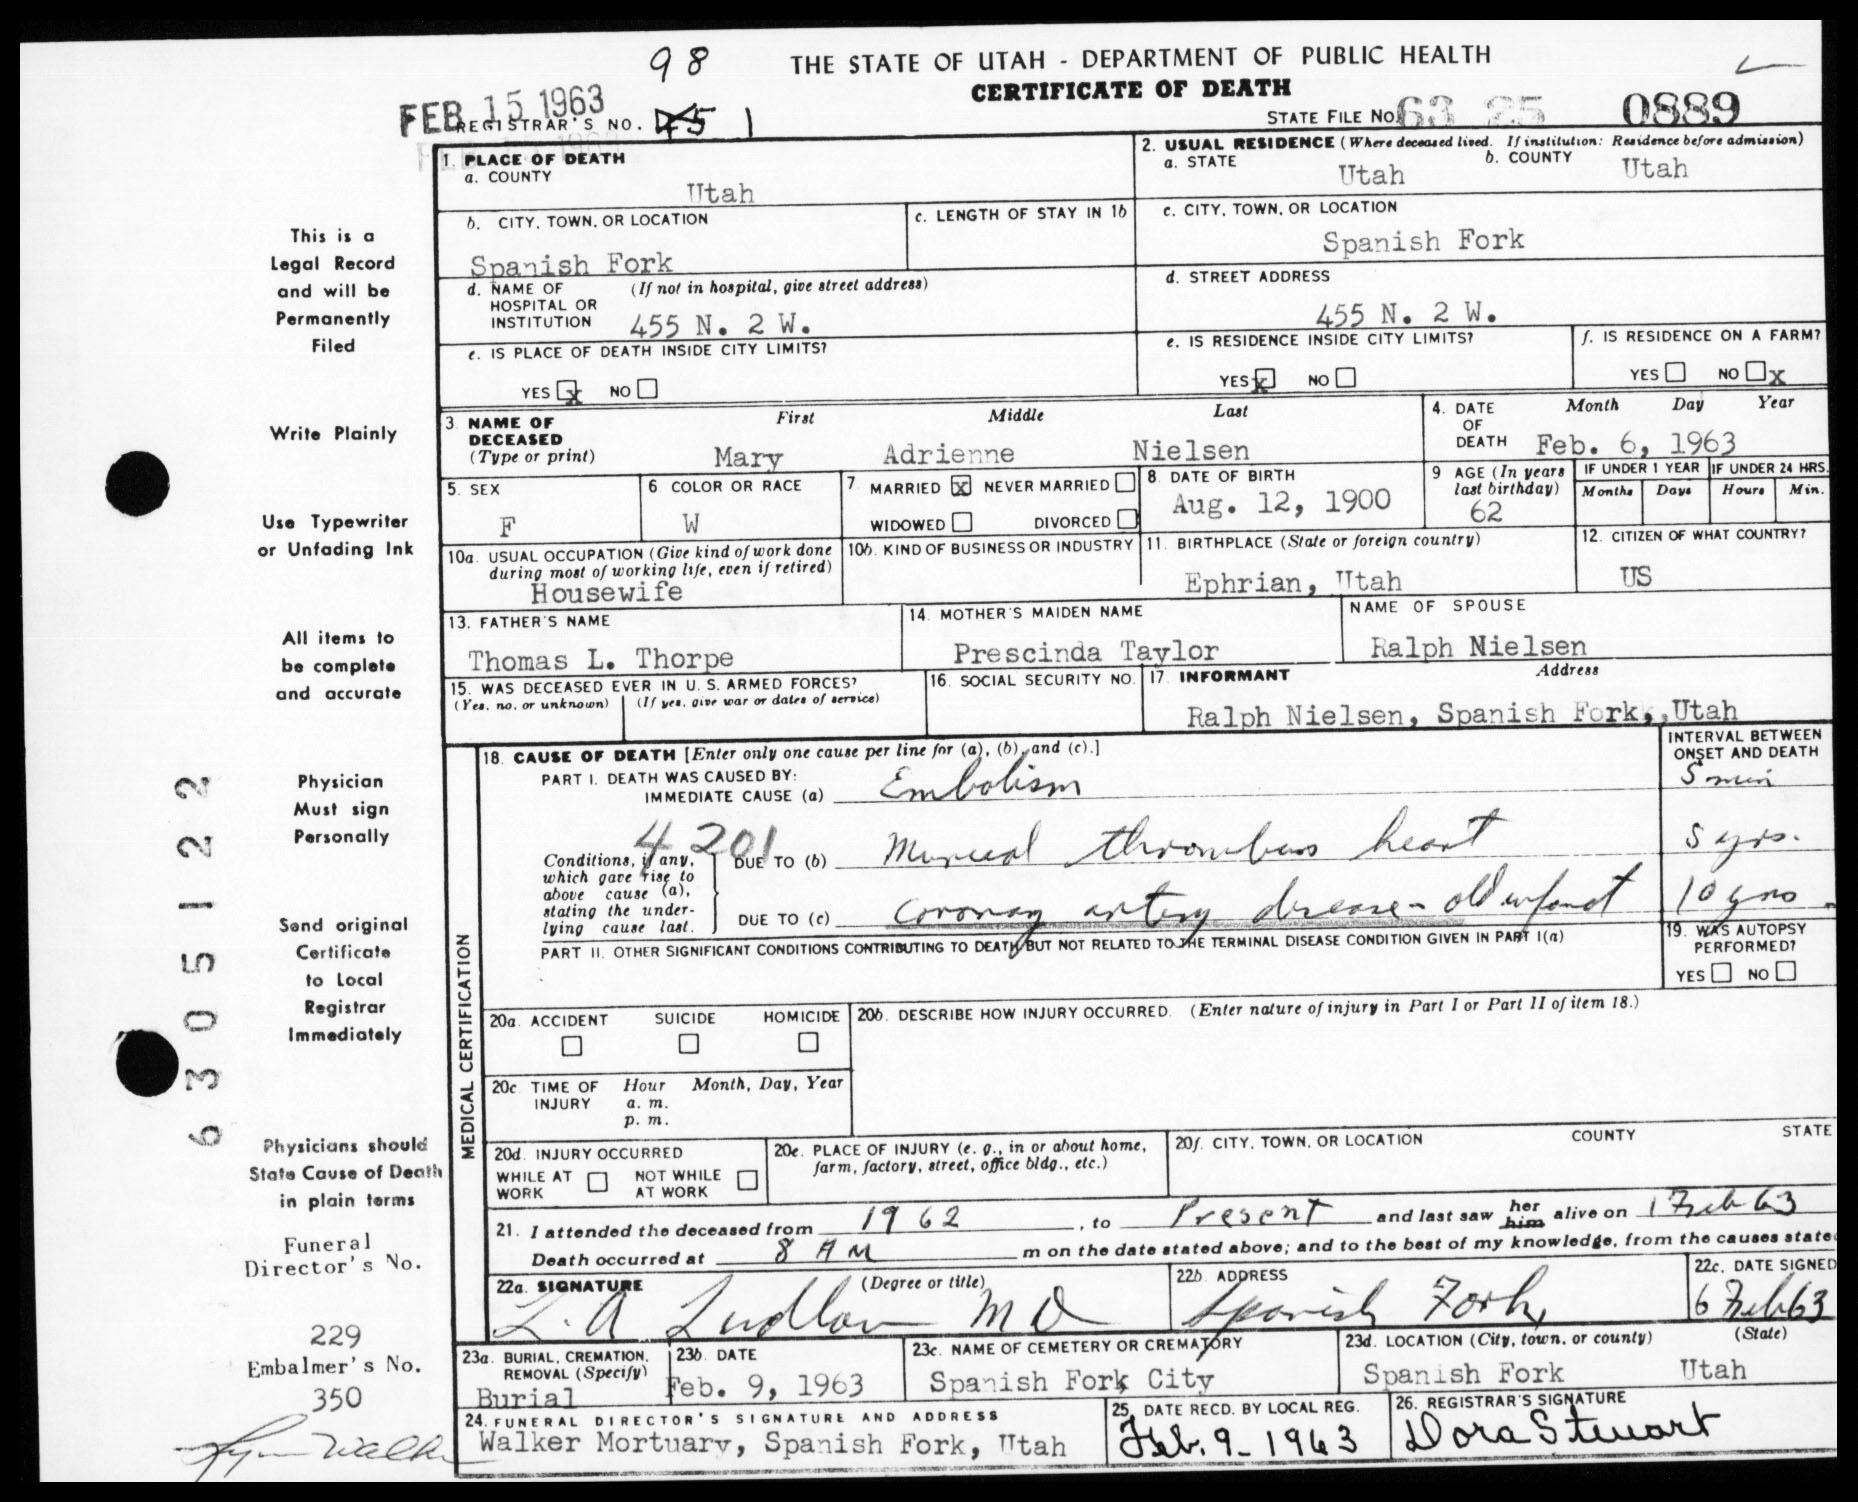 98
THE STATE OF UTAH - DEPARTMENT OF PUBLIC HEALTH
CERTIFICATE OF DEATH
FEB 15 1963
REGISTRAR'S NO. 45 1
STATE FILE NO. 63 25 0889
1. PLACE OF DEATH
a. COUNTY
Utah
2. USUAL RESIDENCE (Where deceased lived. If institution: Residence before admission)
a. STATE
Utah
b. COUNTY
Utah
b. CITY, TOWN, OR LOCATION
Spanish Fork
c. LENGTH OF STAY IN 1b
c. CITY, TOWN, OR LOCATION
Spanish Fork
d. NAME OF HOSPITAL OR INSTITUTION
(If not in hospital, give street address)
455 N. 2 W.
d. STREET ADDRESS
455 N. 2 W.
e. IS PLACE OF DEATH INSIDE CITY LIMITS?
YES x NO
e. IS RESIDENCE INSIDE CITY LIMITS?
YES x NO
f. IS RESIDENCE ON A FARM?
YES NO x
3. NAME OF DECEASED
(Type or print)
First Middle Last
Mary Adrienne Nielsen
4. DATE OF DEATH
Month Day Year
Feb. 6, 1963
5. SEX
F
6. COLOR OR RACE
W
7. MARRIED x NEVER MARRIED
WIDOWED DIVORCED
8. DATE OF BIRTH
Aug. 12, 1900
9 AGE (In years last birthday)
62
IF UNDER 1 YEAR
Months Days
IF UNDER 24 HRS.
Hours Min.
10a. USUAL OCCUPATION (Give kind of work done
during most of working life, even if retired)
Housewife
10b. KIND OF BUSINESS OR INDUSTRY
11. BIRTHPLACE (State or foreign country)
Ephrian, Utah
12. CITIZEN OF WHAT COUNTRY?
US
13. FATHER'S NAME
Thomas L. Thorpe
14. MOTHER'S MAIDEN NAME
Prescinda Taylor
NAME OF SPOUSE
Ralph Nielsen
15. WAS DECEASED EVER IN U. S. ARMED FORCES?
(Yes, no, or unknown) (If yes, give war or dates of service)
16. SOCIAL SECURITY NO.
17. INFORMANT Address
Ralph Nielsen, Spanish Fork,,Utah
MEDICAL CERTIFICATION
18. CAUSE OF DEATH [Enter only one cause per line for (a), (b), and (c).]
PART I. DEATH WAS CAUSED BY:
IMMEDIATE CAUSE (a) Embolism
INTERVAL BETWEEN ONSET AND DEATH
5 min
4201
Conditions, if any,
which gave rise to
above cause (a),
stating the under-
lying cause last.
DUE TO (b) Mureal thrombus heart
5 yrs.
DUE TO (c) coronary artery disease - old infarct
10 yrs
PART II. OTHER SIGNIFICANT CONDITIONS CONTRIBUTING TO DEATH BUT NOT RELATED TO THE TERMINAL DISEASE CONDITION GIVEN IN PART I(a)
19. WAS AUTOPSY PERFORMED?
YES NO
20a. ACCIDENT SUICIDE HOMICIDE
20b. DESCRIBE HOW INJURY OCCURRED. (Enter nature of injury in Part I or Part II of item 18.)
20c. TIME OF INJURY
Hour Month, Day, Year
a. m.
p. m.
20d. INJURY OCCURRED
WHILE AT WORK NOT WHILE AT WORK
20e. PLACE OF INJURY (e. g., in or about home,
farm, factory, street, office bldg., etc.)
20f. CITY, TOWN, OR LOCATION COUNTY STATE
21. I attended the deceased from 1962, to Present and last saw her him alive on 1 Feb 63
Death occurred at 8 AM m on the date stated above; and to the best of my knowledge, from the causes state
22a. SIGNATURE (Degree or title)
L. A Ludlow M D
22b. ADDRESS
Spanish Fork,
22c. DATE SIGNED
6 Feb 63
23a. BURIAL, CREMATION, REMOVAL (Specify)
Burial
23b. DATE
Feb. 9, 1963
23c. NAME OF CEMETERY OR CREMATORY
Spanish Fork City
23d. LOCATION (City, town, or county) (State)
Spanish Fork Utah
24. FUNERAL DIRECTOR'S SIGNATURE AND ADDRESS
Walker Mortuary, Spanish Fork, Utah
25. DATE RECD. BY LOCAL REG.
Feb. 9 - 1963
26. REGISTRAR'S SIGNATURE
Dora Stewart
This is a
Legal Record
and will be
Permanently
Filed
Write Plainly
Use Typewriter
or Unfading Ink
All items to
be complete
and accurate
Physician
Must sign
Personally
Send original
Certificate
to Local
Registrar
Immediately
Physicians should
State Cause of Death
in plain terms
Funeral
Director's No.
229
Embalmer's No.
350
6305122